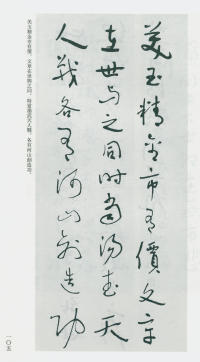 美玉精金市有價文章
在世与之同时當湯武天
人戰各有河山創造功
美玉精金市有價,文章在世與之同。時當湯武天人戰,各有河山創造功。
一〇五